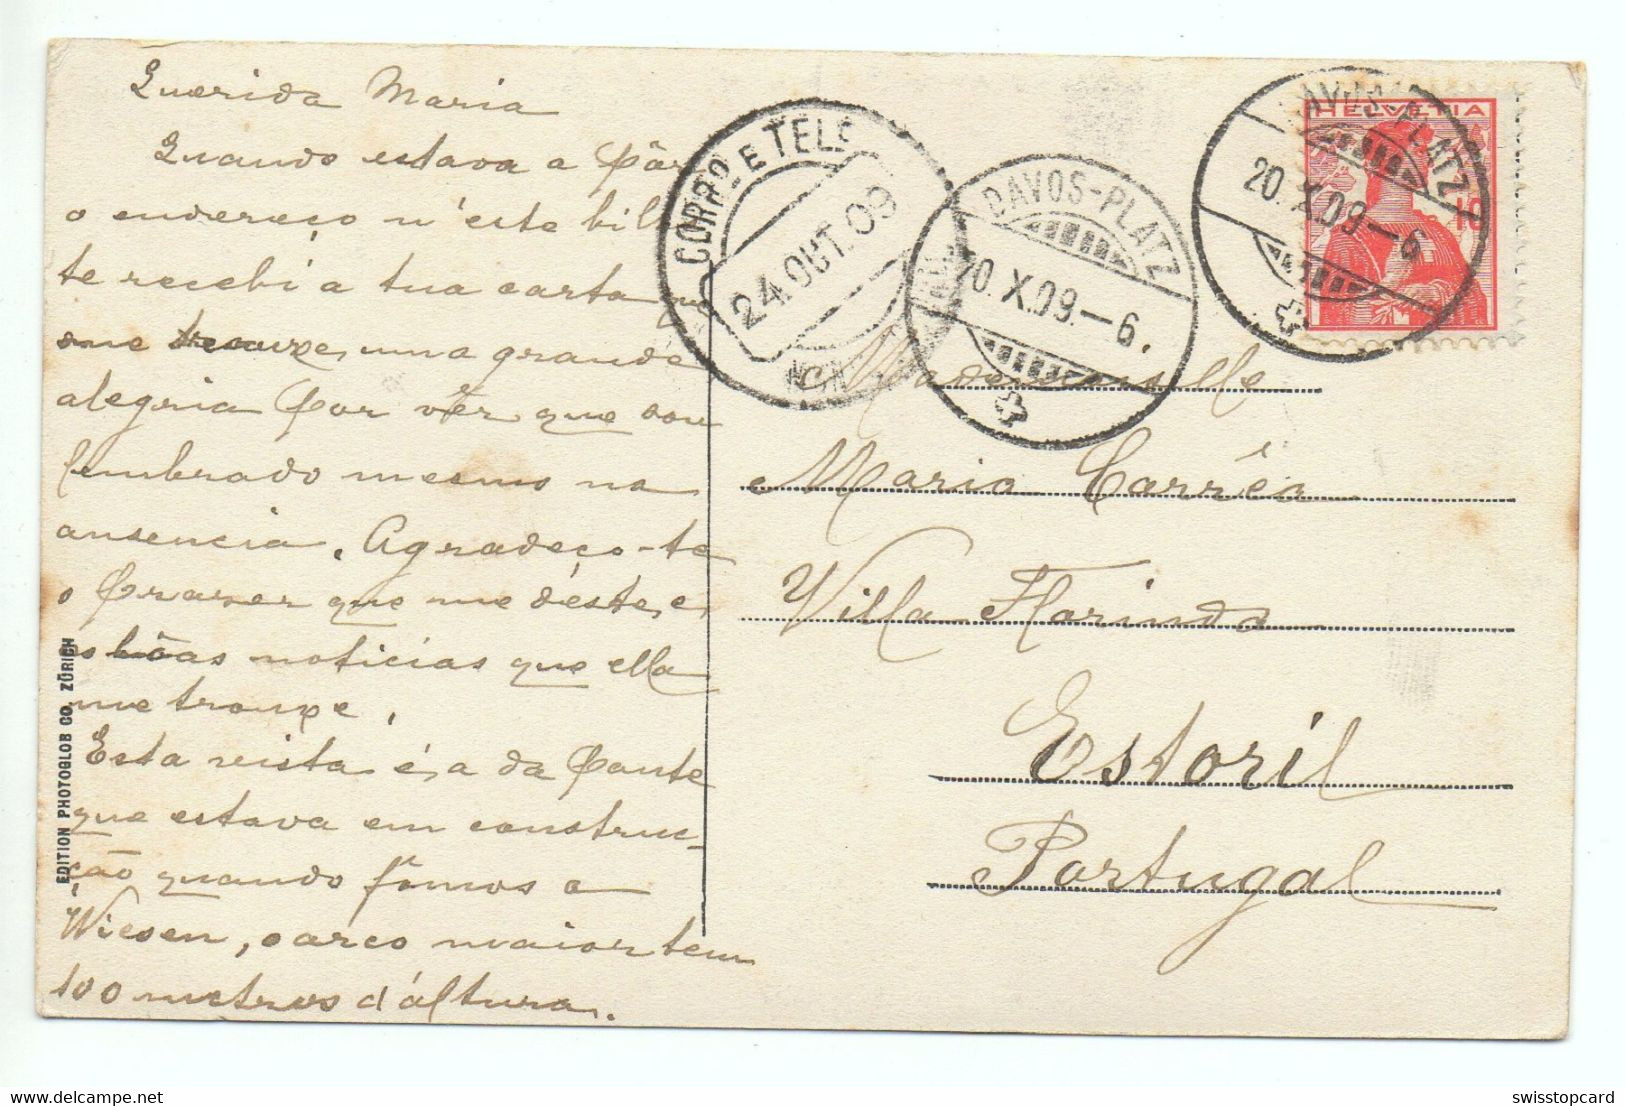 Querida Maria
Quando estava a pôr
o endereço n'este bilhe
te recebi a tua carta
que trouxe uma grande
alegria por vêr que sou
lembrado mesmo na
ausencia. Agradeço-te
o prazer que me déste, e
as bôas noticias que ella
me trouxe.
Esta vista é a da ponte
que estava em construc-
ção quando fômos a
Wiesen, o arco maior tem
100 metros d'altura.
EDITION PHOTOGLOB CO. ZÜRICH
CORRO E TELE
24.OUT.09
DAVOS-PLATZ
20.X.09.-6.
DAVOS-PLATZ
20.X.09-6
HELVETIA
10
Mademoiselle
Maria Corrêa
Villa Florinda
Estoril
Portugal
www.delcampe.net
swisstopcard